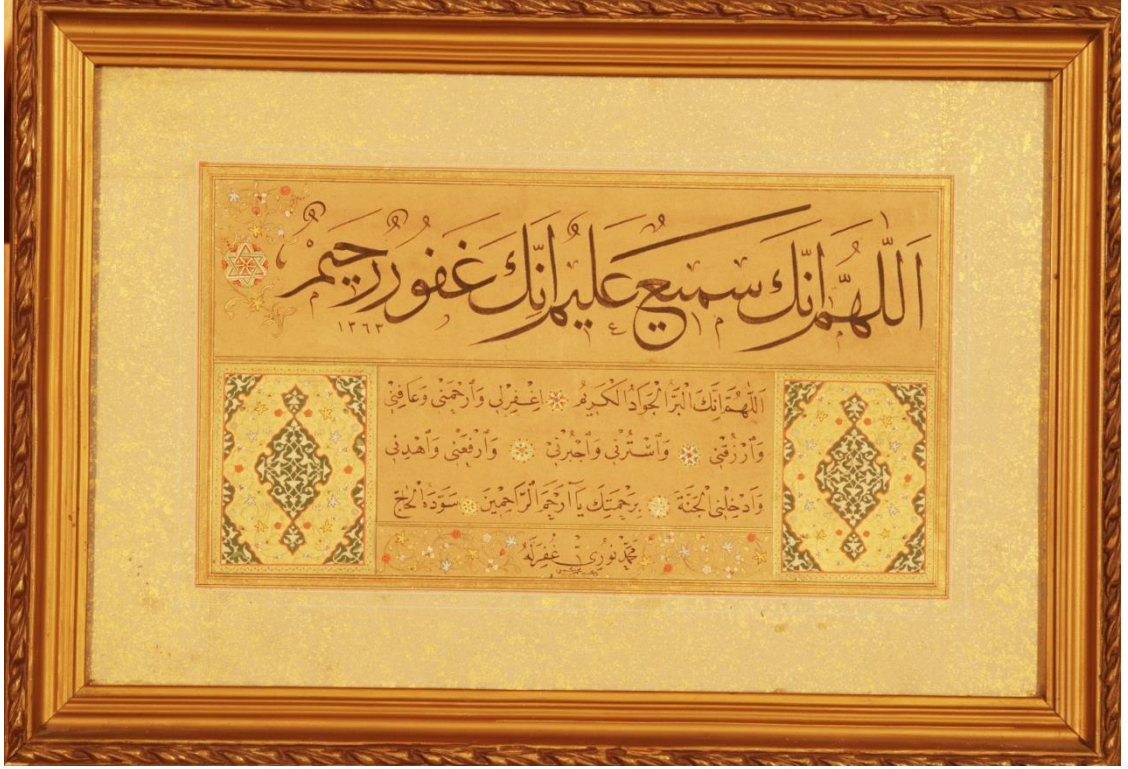 اَللّٰهُمَّ اِنَّكَ سَمِيعٌ عَلِيمٌ اِنَّكَ غَفُورٌ رَحِيمٌ
١٣٦٣
اَللّٰهُمَّ اِنَّكَ الْبَرُّ الْجَوَادُ الْكَرِيمُ اِغْفِرْلِى وَٱرْحَمْنِى وَعَافِنِى
وَٱرْزُقْنِى وَٱسْتُرْنِى وَٱجْبُرْنِى وَٱرْفَعْنِى وَٱهْدِنِى
وَاَدْخِلْنِى الْجَنَّةَ بِرَحْمَتِكَ يَآ اَرْحَمَ الرَّاحِمِينَ سَوَّدَهُ الْحَاج
مُحَمَّد نُورِى غُفِرَلَهُ